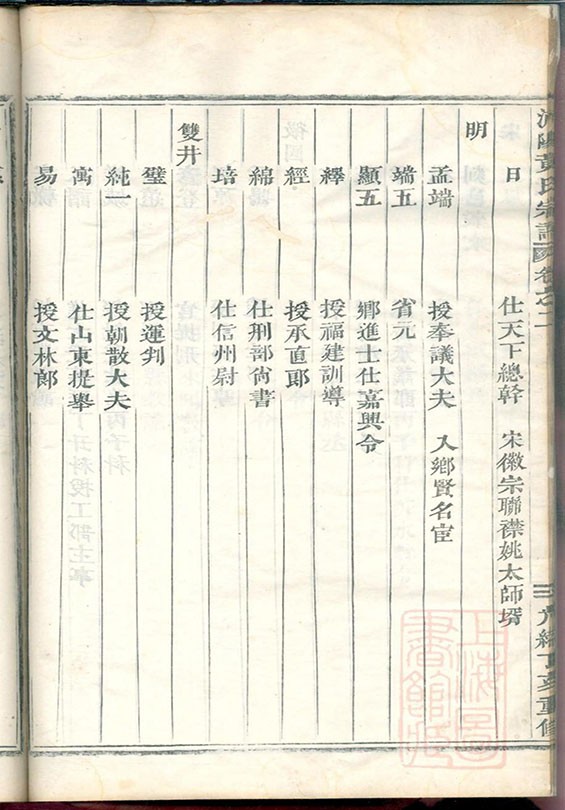 黃氏宗譜 卷之二
日 仕天下總幹 宋徽宗聯襟姚太師壻
明
孟端 授奉議大夫 入鄉賢名宦
端五 省元
顯五 鄉進士仕嘉興令
繹 授福建訓導
經 授承直郎
綿 仕刑部尚書
培 仕信州尉
雙井
璧 授運判
純一 授朝散大夫
寓 仕山東提舉
易 授文林郎
三 光緒丁亥重修
上海圖書館藏